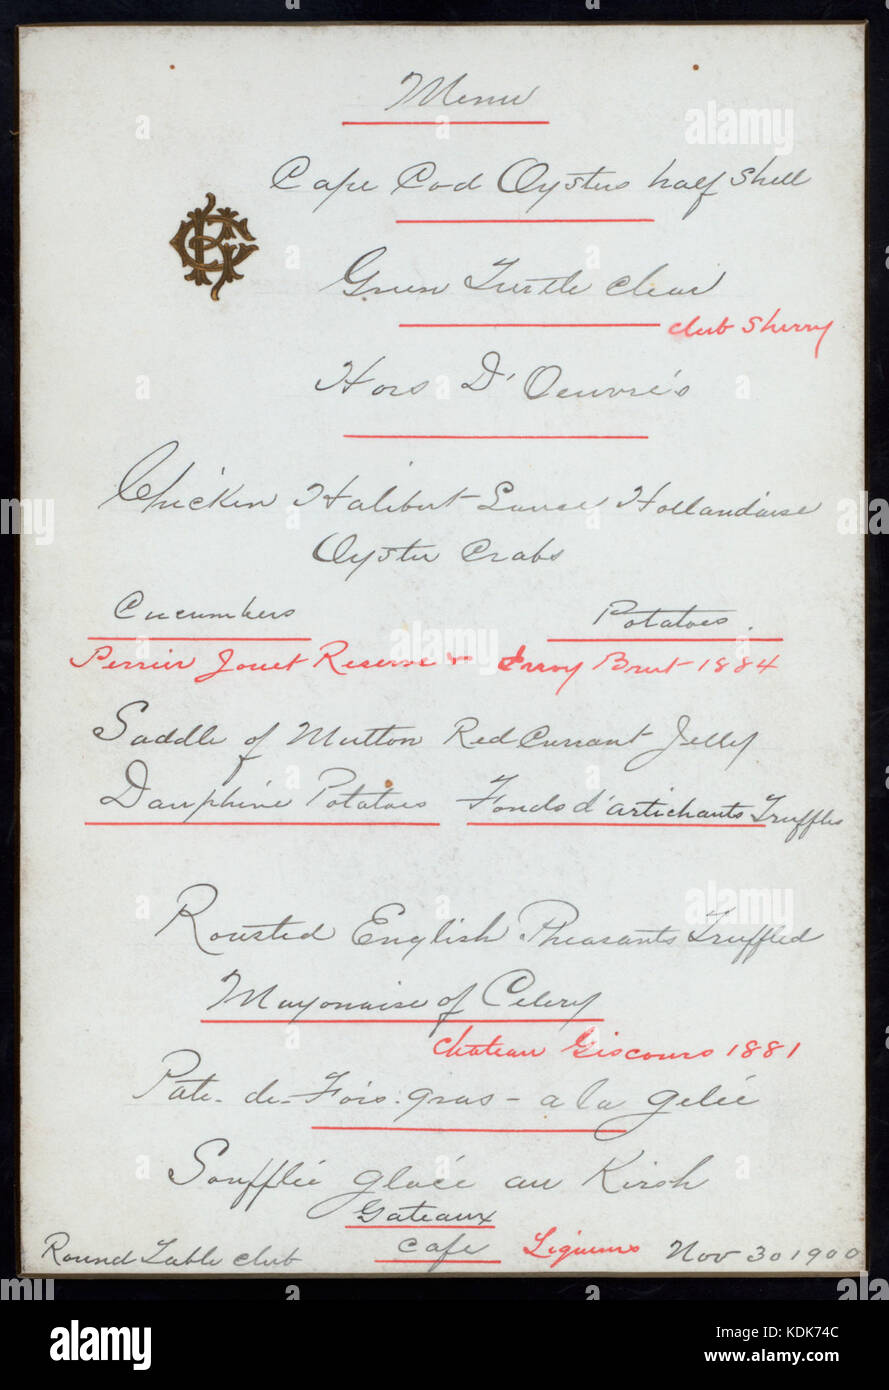 Menu
Cape Cod Oysters half Shell
Green Turtle Clear
club Sherry
Hors D'Oeuvre's
Chicken Halibut Sauce Hollandaise
Oyster Crabs
Cucumbers Potatoes.
Perrier Jouet Reserve & Irroy Brut 1884
Saddle of Mutton Red Currant Jelly
Dauphine Potatoes Fonds d'artichants Truffles
Roasted English Pheasants Truffled
Mayonaise of Celery
Chateau Giscours 1881
Pate-de-Fois-gras-a la gelée
Soufflée glacée au Kirsh
Gateaux
Cafe Liqueurs
Round Table Club Nov 30 1900
alamy
Image ID: KDK74C
www.alamy.com